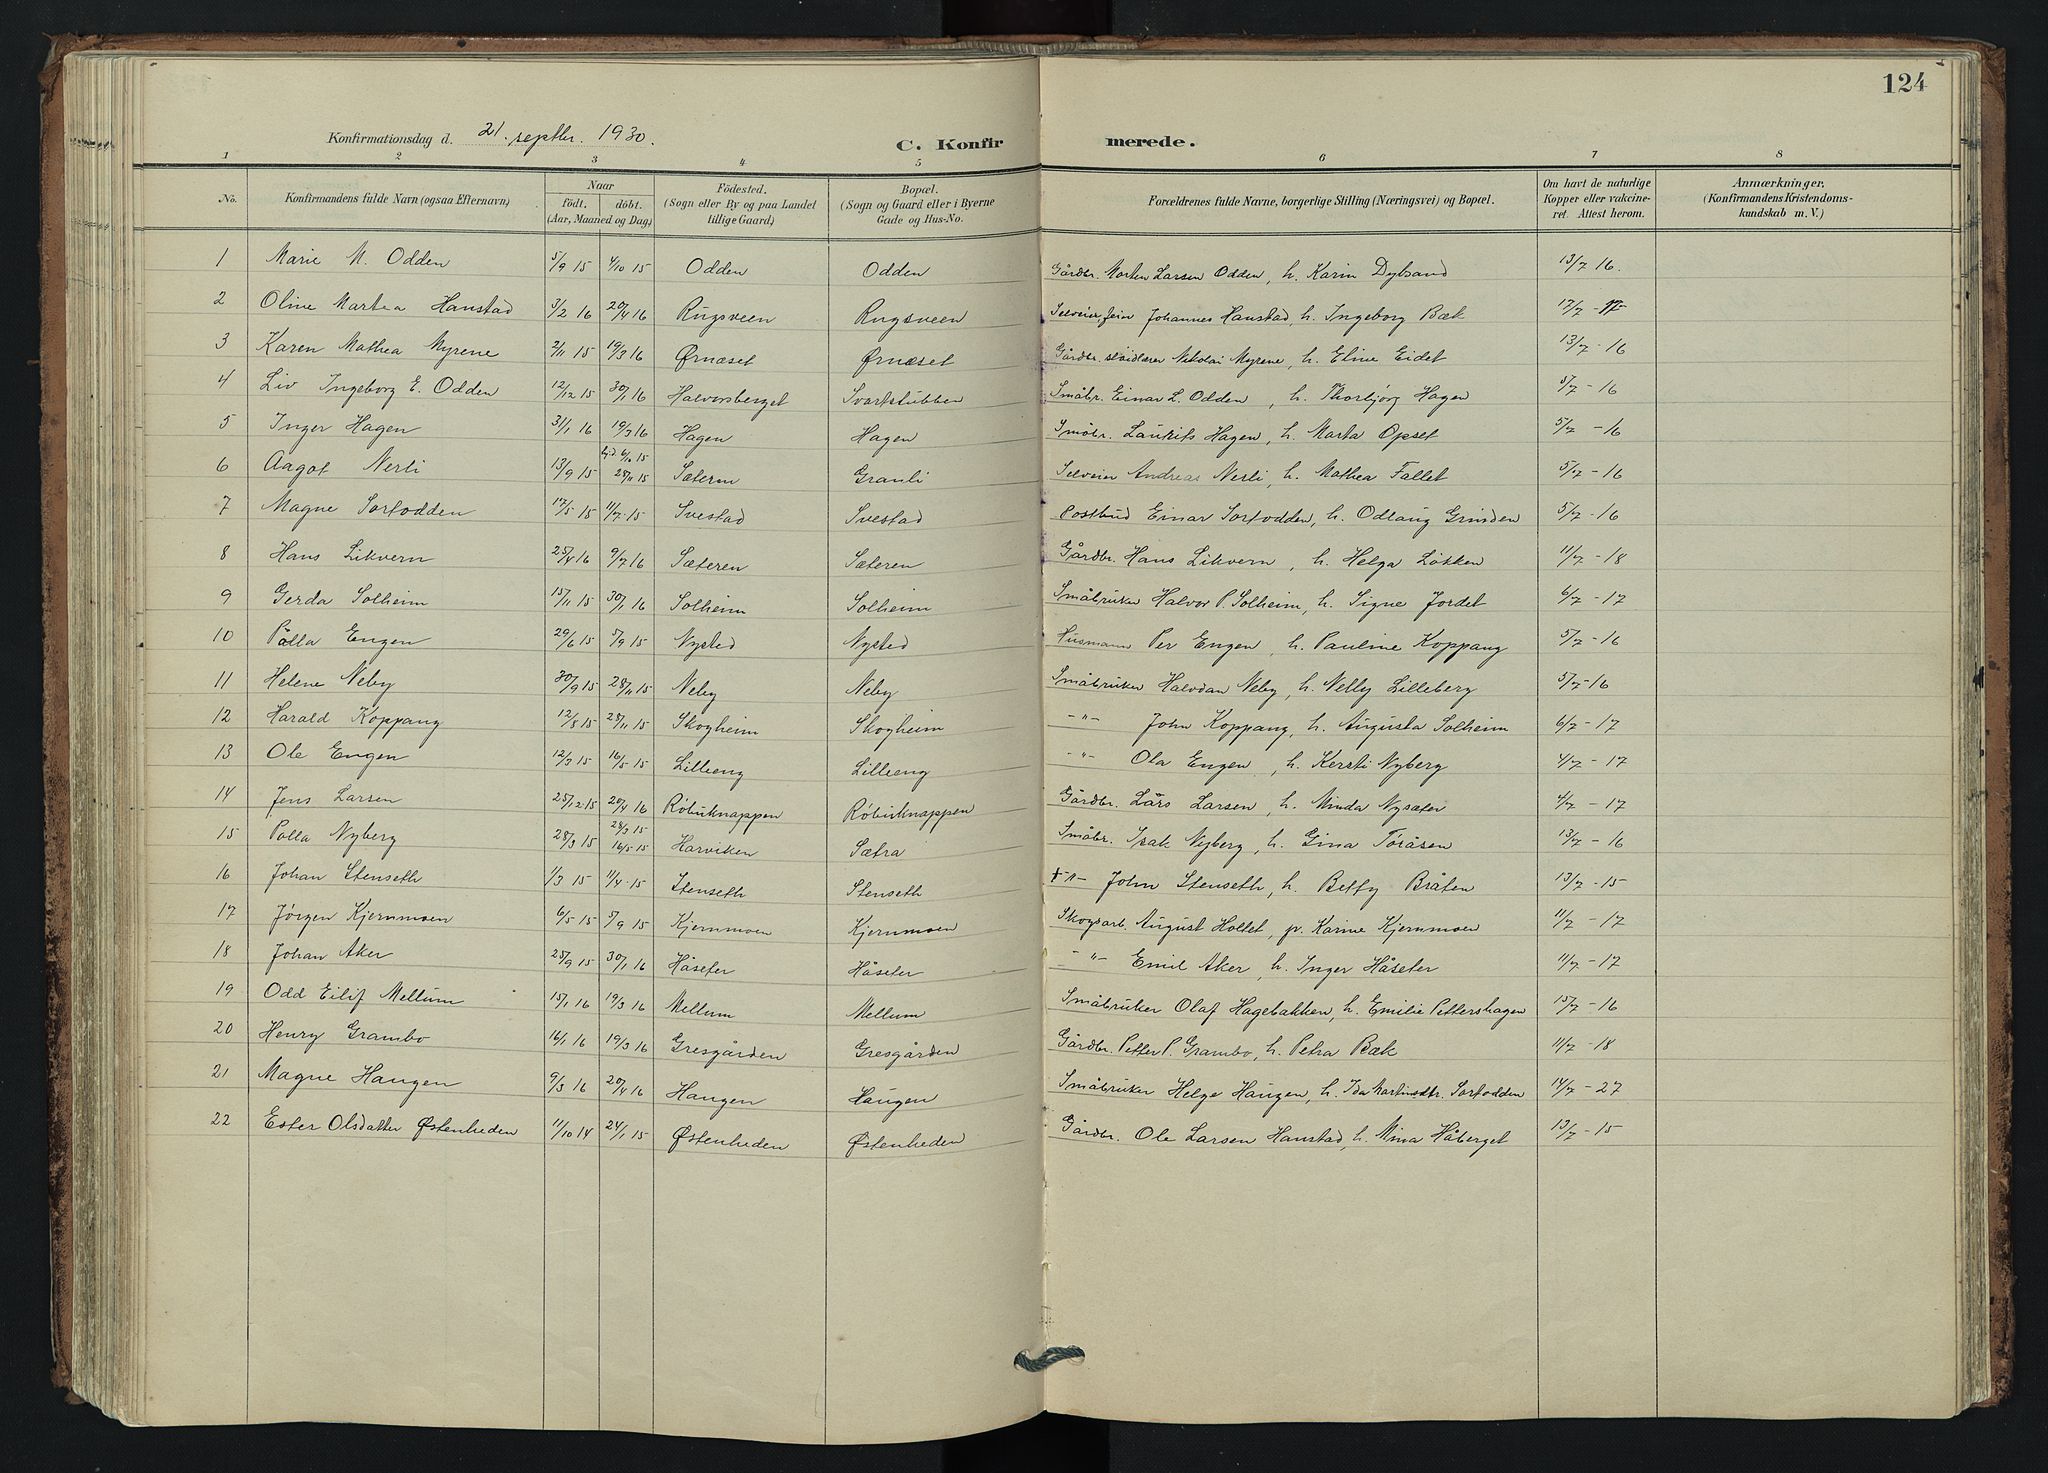 124
Konfirmationsdag d. 21. septbr. 1930.
C. Konfirmerede.
1 2 3 4 5 6 7 8
No. Konfirmandens fulde Navn (ogsaa Efternavn) Naar födt. döbt. (Aar, Maaned og Dag.) Födested. (Sogn eller By og paa Landet tillige Gaard) Bopæl. (Sogn og Gaard eller i Byerne Gade og Hus-No. Forældrenes fulde Navne, borgerlige Stilling (Næringsvei) og Bopæl. Om havt de naturlige Kopper eller vakcineret. Attest herom. Anmærkninger. (Konfirmandens Kristendomskundskab m. V.)
1 Marie M. Odden 5/9 15 4/10 15 Odden Odden Gårdbr. Morten Larsen Odden, h. Karin Dybsand 13/7 16.
2 Oline Martea Hanstad 3/2 16 20/4 16 Rugsveen Rugsveen Selveier, feier Johannes Hanstad, h. Ingeborg Bæk 17/7 - 17
3 Karen Mathea Myrene 2/11 15 19/3 16 Ørnæset Ørnæset Gårdbr. Nikolai Myrene, h. Eline Eidet 13/7 - 16
4 Liv Ingeborg E. Odden 12/12 15 30/1 16 Halvorsberget Svartstubben Småbr. Einar L. Odden, h. Thorbjörg Hagen 5/7 - 16
5 Inger Hagen 31/1 16 19/3 16 Hagen Hagen Småbr. Laurits Hagen, h. Marta Opset 5/7 - 16
6 Aagot Nerli 13/9 15 hjd 6/10 15 28/11 15 Sæteren Granli Selveier Andreas Nerli, h. Mathea Fallet 5/7 - 16
7 Magne Sortodden 17/5 15 11/7 15 Svestad Svestad Postbud Einar Sortodden, h. Odlaug Grinden 5/7 - 16
8 Hans Likvern 25/4 16 9/7 16 Sæteren Sæteren Gårdbr. Hans Likvern, h. Helga Løkken 11/7 - 18
9 Gerda Solheim 15/11 15 30/1 16 Solheim Solheim Småbruker Halvor P. Solheim, h. Signe Jordet 6/7 - 17
10 Palla Engen 29/6 15 5/9 15 Nysted Nysted Husmann Per Engen, h. Pauline Koppang 5/7 - 16
11 Helene Neby 30/9 15 28/11 15 Neby Neby Småbruker Halvdan Neby, h. Nelly Lilleberg 5/7 - 16
12 Harald Koppang 12/8 15 28/11 15 Skogheim Skogheim -"- John Koppang, h. Augusta Solheim 6/7 - 17
13 Ole Engen 12/3 15 16/5 15 Lilleeng Lilleeng -"- Ola Engen, h. Kersti Nyberg 4/7 - 17
14 Jens Larsen 25/12 15 20/4 16 Røbuknappen Røbuknappen Gårdbr. Lars Larsen, h. Minda Nysæter 4/7 - 17
15 Palla Nyberg 28/3 15 28/3 15 16/5 15 Harviken Sætra Småbr. Isak Nyberg, h. Gina Toråsen 13/7 - 16
16 Johan Stenseth 1/3 15 11/4 15 Stenseth Stenseth -"- John Stenseth, h. Betty Bråten 13/7 - 15
17 Jørgen Kjernmoen 6/5 15 5/9 15 Kjernmoen Kjernmoen Skogsarb. August Holtet, p. Karine Kjernmoen 11/7 - 17
18 Johan Aker 25/9 15 30/1 16 Håseter Håseter -"- Emil Aker, h. Inger Håseter 11/7 - 17
19 Odd Eilif Mellum 15/1 16 19/3 16 Mellum Mellum Småbruker Olaf Hagebakken, h. Emilie Pettershagen 15/7 - 16
20 Henry Grambo 16/1 16 19/3 16 Gresgården Gresgården Gårdbr. Petter P. Grambo, h. Petra Bæk 11/7 - 18
21 Magne Haugen 9/3 16 20/4 16 Haugen Haugen Småbruker Helge Haugen, h. Ida Martinsdtr. Sortodden 14/7 - 27
22 Ester Olsdatter Østenheden 11/10 14 24/1 15 Østenheden Østenheden Gårdbr. Ole Larsen Hanstad, h. Mina Håberget 13/7 - 15